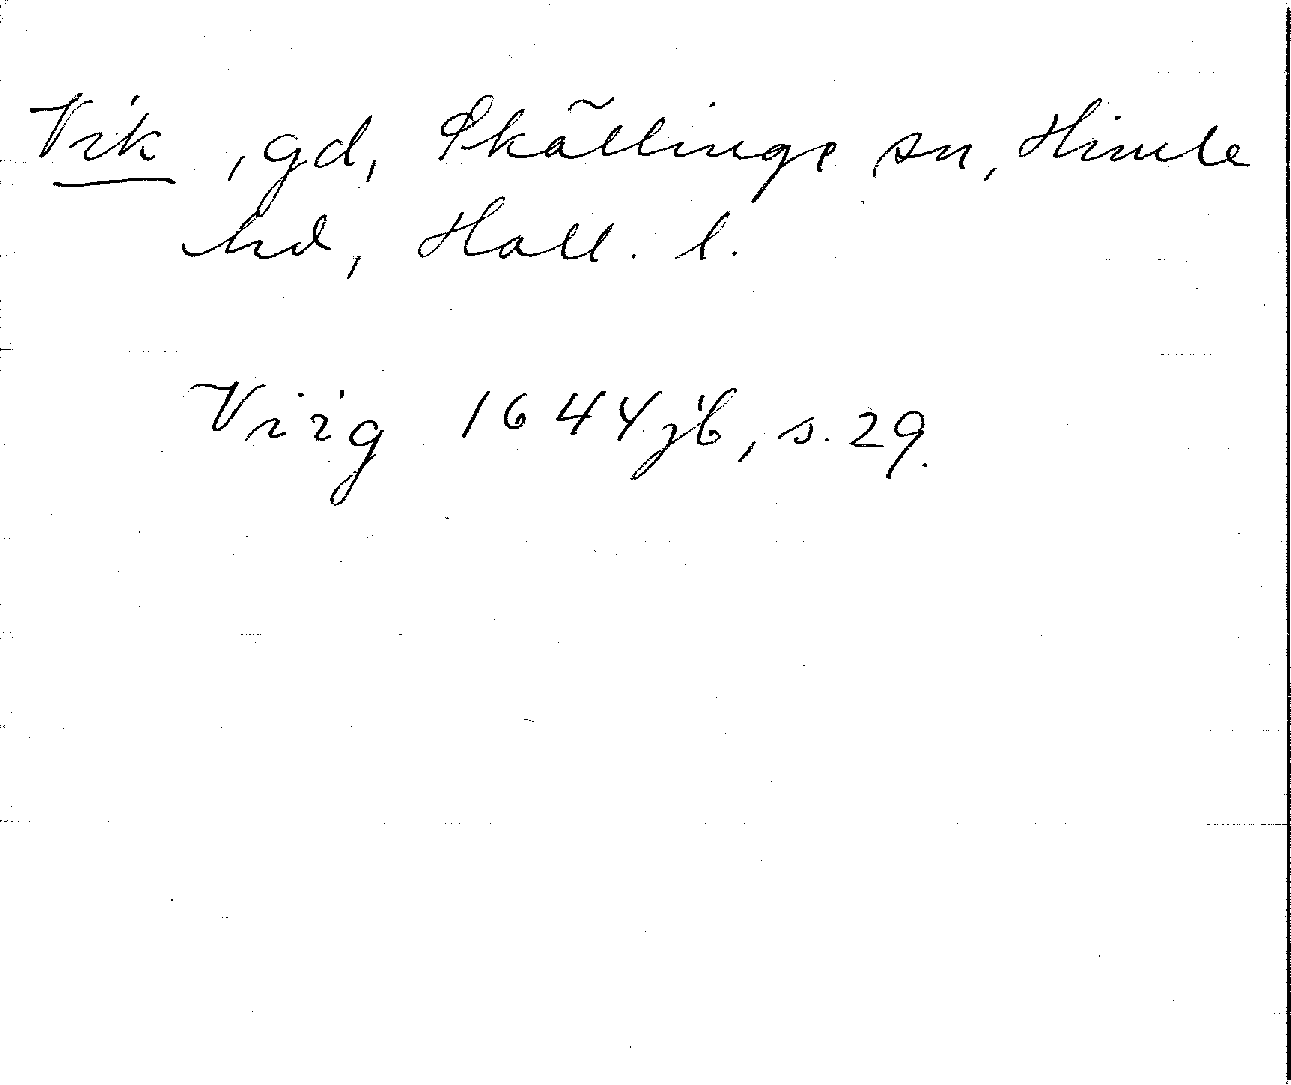 Vik, gd, Skällinge sn, Himle
hd, Hall. l.
Viig 1644 jb, s. 29.